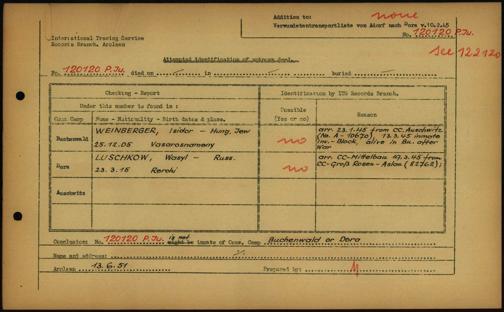 Addition to: none
International Tracing Service
Records Branch, Arolsen
Verwundetentransportliste von Adorf nach Dora v.10.2.45
No. 120120 P.Ju.
see 122120
Attempted identification of unknown dead.
No. 120120 P.Ju. died on in buried
Checking - Report
Identification by ITS Records Branch.
Under this number is found in:
Possible
(Yes or no)
Reason
Conc Camp
Name - Nationality - Birth dates & place.
Buchenwald
WEINBERGER, Isidor - Hung, Jew
25.12.05 Vasarosnameny
no
arr. 23.1.45 from CC. Auschwitz
(No. A - 10670), 13.3.45 inmate
inv.-Block, alive in Bu. after
War
Dora
LUSCHKOW, Wasyl - Russ.
23.3.15
no
arr. CC-Mittelbau 19.3.45 from
CC-Groß Rosen - Aslau (82762);
Auschwitz
Conclusion: No. 120120 P.Ju. is not might be inmate of Conc. Camp Buchenwald or Dora
Name and address:
Arolsen 13.6.51
Prepared by: